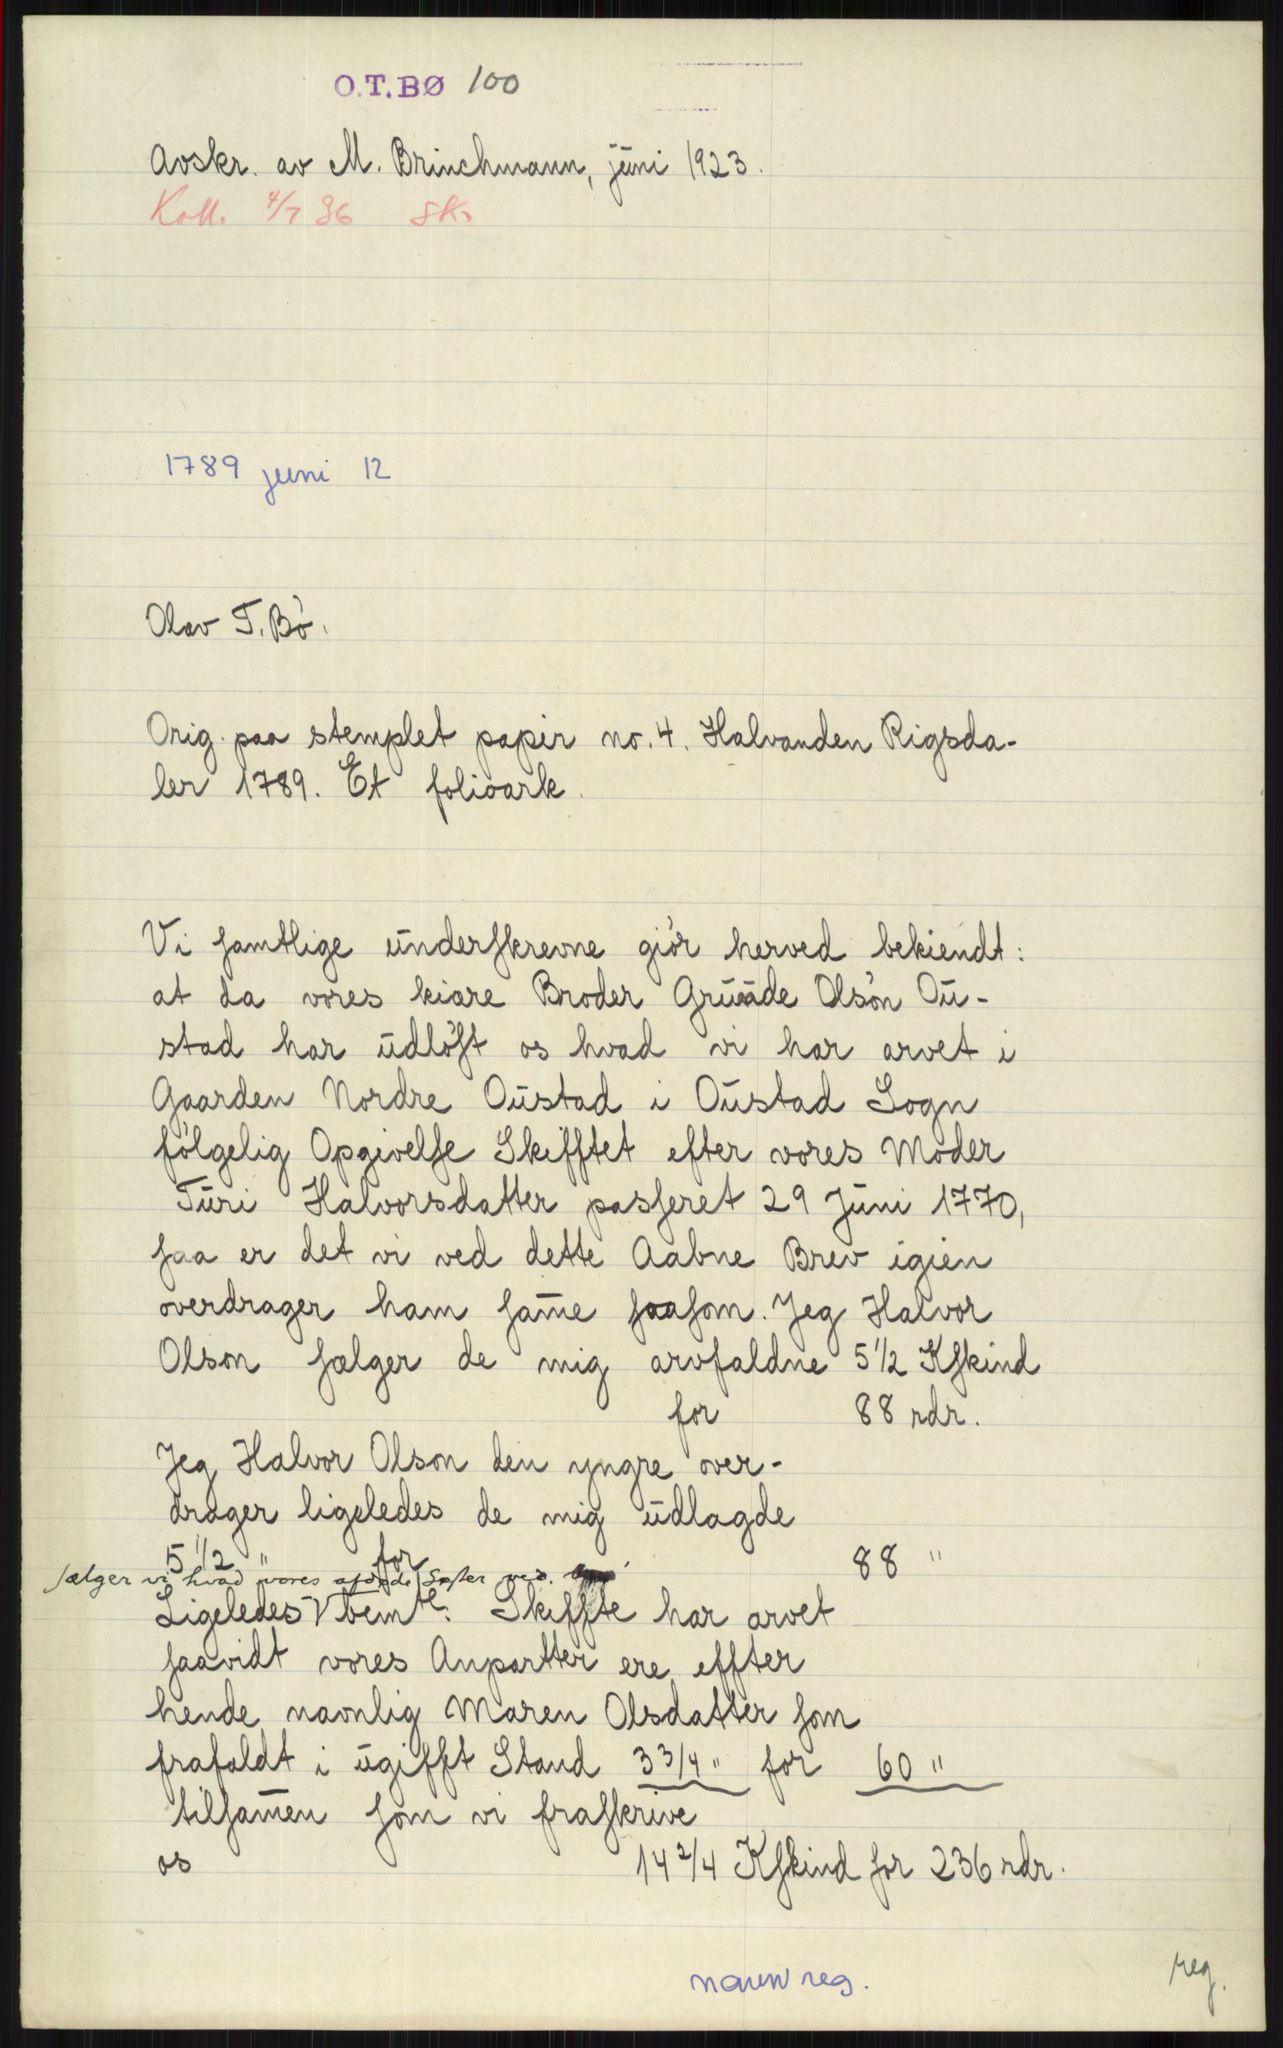 O.T.BØ 100
Avskr. av M. Brinchmann, juni 1923.
Koll. 4/7 36 SK.
1789 juni 12
Olav T. Bö.
Orig. paa stemplet papir no. 4. Halvanden Rigsda-
ler 1789. Et folioark.
Vi samtlige underskrevne giör herved bekiendt:
at da vores kiære Broder Grunde Olsön Ou-
stad har udlöst os hvad vi har arvet i
Gaarden Nordre Oustad i Oustad Sogn
fölgelig Opgivelse Skifftet efter vores Moder
Turi Halvorsdatter passeret 29 Juni 1770,
saa er det vi ved dette Aabne Brev igien
overdrager ham sam̅e saasom. Jeg Halvor
Olson sælger de mig arvfaldne 5 1/2 Kskind
for 88 rdr.
Jeg Halvor Olson den yngre over-
drager ligeledes de mig udlagde
5 1/2 " for 88 "
sælger vi hvad vores afdöde Søster ved
Ligeledes V bemte: Skiffte har arvet
saavidt vores Anpartter ere effter
hende navnlig Maren Olsdatter som
frafaldt i ugifft Stand 3 3/4 " for 60 "
tilsam̅en som vi fraskrive
os 14 2/4 Kskind for 236 rdr.
navnreg.
reg.